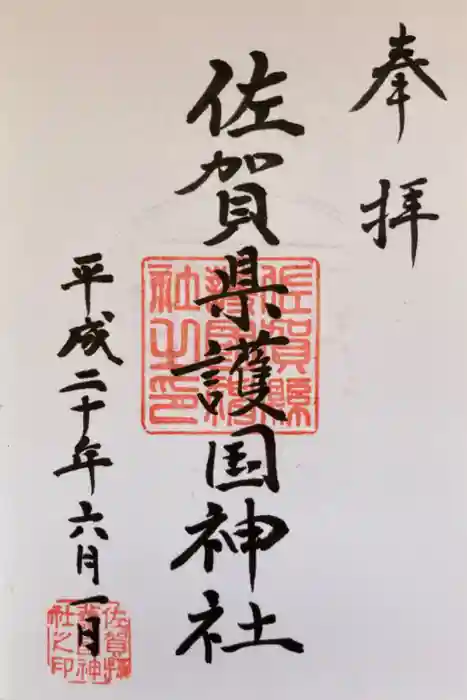 奉拝
佐賀県護国神社
佐賀縣
護國神
社之印
平成二十年六月一日
佐賀縣
護國神
社之印